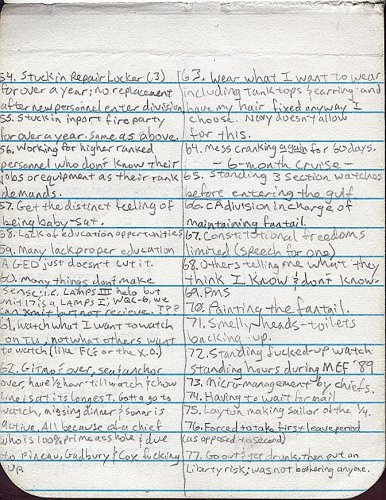 54. Stuck in Repair Locker (3)
for over a year; no replacement
after new personnel enter division
55. Stuck in inport fire party
for over a year. Same as above.
56. Working for higher ranked
personnel who don't know their
jobs or equipment as their rank
demands.
57. Get the distinct feeling of
being baby-sat.
58. Lack of education opportunities
59. Many lack proper education
A GED just doesn't cut it.
60. Many things dont make
sense; i.e. LAMPS III help but
unit is a LAMPS I, WQC-6, we
can xmit but not recieve. ???
61. Watch what I want to watch
on T.V., not what others want
to watch (like FCs or the X.O.)
62. GITMO over, sea & anchor
over, have ½ hour till watch & chow
line is at its longest. Gotta go to
watch, missing dinner & Sonar is
active. All because of a chief
who is 100% prime asshole & due
to Pineau, Gadbury & Cox fucking
up
63. Wear what I want to wear
including tank tops & earring and
have my hair fixed anyway I
choose. Navy doesn't allow
for this.
64. Mess cranking again for 60 days.
- 6-month cruise -
65. Standing 3 section watches
before entering the gulf
66. CA division in charge of
maintaining fantail.
67. Constitutional freedoms
limited (speech for one)
68. Others telling me what they
think I know & don't know.
69. PMS
70. Painting the fantail.
71. Smelly heads - toilets
backing up.
72. Standing fucked-up watch
standing hours during MEF '89
73. Micro-management by chiefs.
74. Having to wait for mail
75. Layton making sailor of the ¼.
76. Forced to take first leave period
(as opposed to second)
77. Go out & get drunk, then put on
liberty risk; was not bothering anyone.